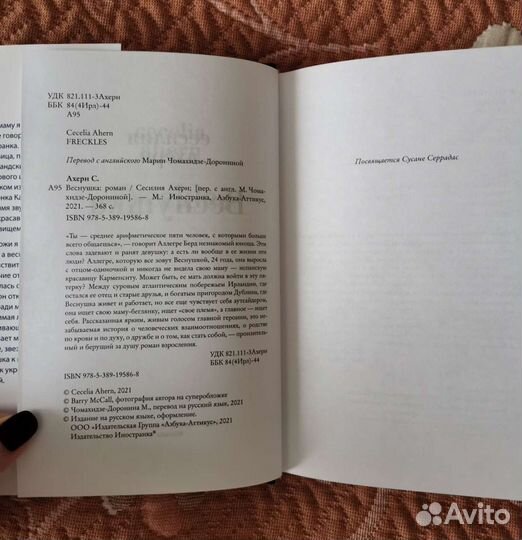 маму я
е говор
ранка.
вица, п
андски
ком из
нка Ка
мя зву
красав
олжен
ожи я
а весн
нствит
тие от
лась с
он отк
ради м
амая л
ивающ
рает м
, звез
шка к
к укр
й.
УДК 821.111-3Ахерн
ББК 84(4Ирл)-44
А95
Cecelia Ahern
FRECKLES
Перевод с английского Марии Чомахидзе-Дорониной
Ахерн С.
А95 Веснушка: роман / Сесилия Ахерн; [пер. с англ. М. Чома-
хидзе-Дорониной]. — М.: Иностранка, Азбука-Аттикус,
2021. — 368 с.
ISBN 978-5-389-19586-8
«Ты — среднее арифметическое пяти человек, с которыми больше
всего общаешься», — говорит Аллегре Берд незнакомый юноша. Эти
слова задевают и ранят девушку: а есть ли вообще в ее жизни эти
люди? Аллегре, которую все зовут Веснушкой, 24 года, она выросла
с отцом-одиночкой и никогда не видела свою маму — испанскую
красавицу Карменситу. Может быть, ее мать должна войти в эту пя-
терку? Между суровым атлантическим побережьем Ирландии, где
остался ее отец и старые друзья, и богатым пригородом Дублина, где
Веснушка живет и работает, но все еще чувствует себя аутсайдером,
она ищет свою маму-беглянку, ищет «свое племя», а главное — ищет
себя. Рассказанная ярким, живым голосом главной героини, это не-
забываемая история о человеческих взаимоотношениях, о родстве
по крови и по духу, о дружбе и о том, как стать собой, — пронзитель-
ный и берущий за душу роман взросления.
УДК 821.111-3Ахерн
ББК 84(4Ирл)-44
ISBN 978-5-389-19586-8
© Cecelia Ahern, 2021
© Barry McCall, фотография автора на суперобложке
© Чомахидзе-Доронина М., перевод на русский язык, 2021
© Издание на русском языке, оформление.
ООО «Издательская Группа «Азбука-Аттикус», 2021
Издательство Иностранка®
Посвящается Сусане Серрадас
Avito